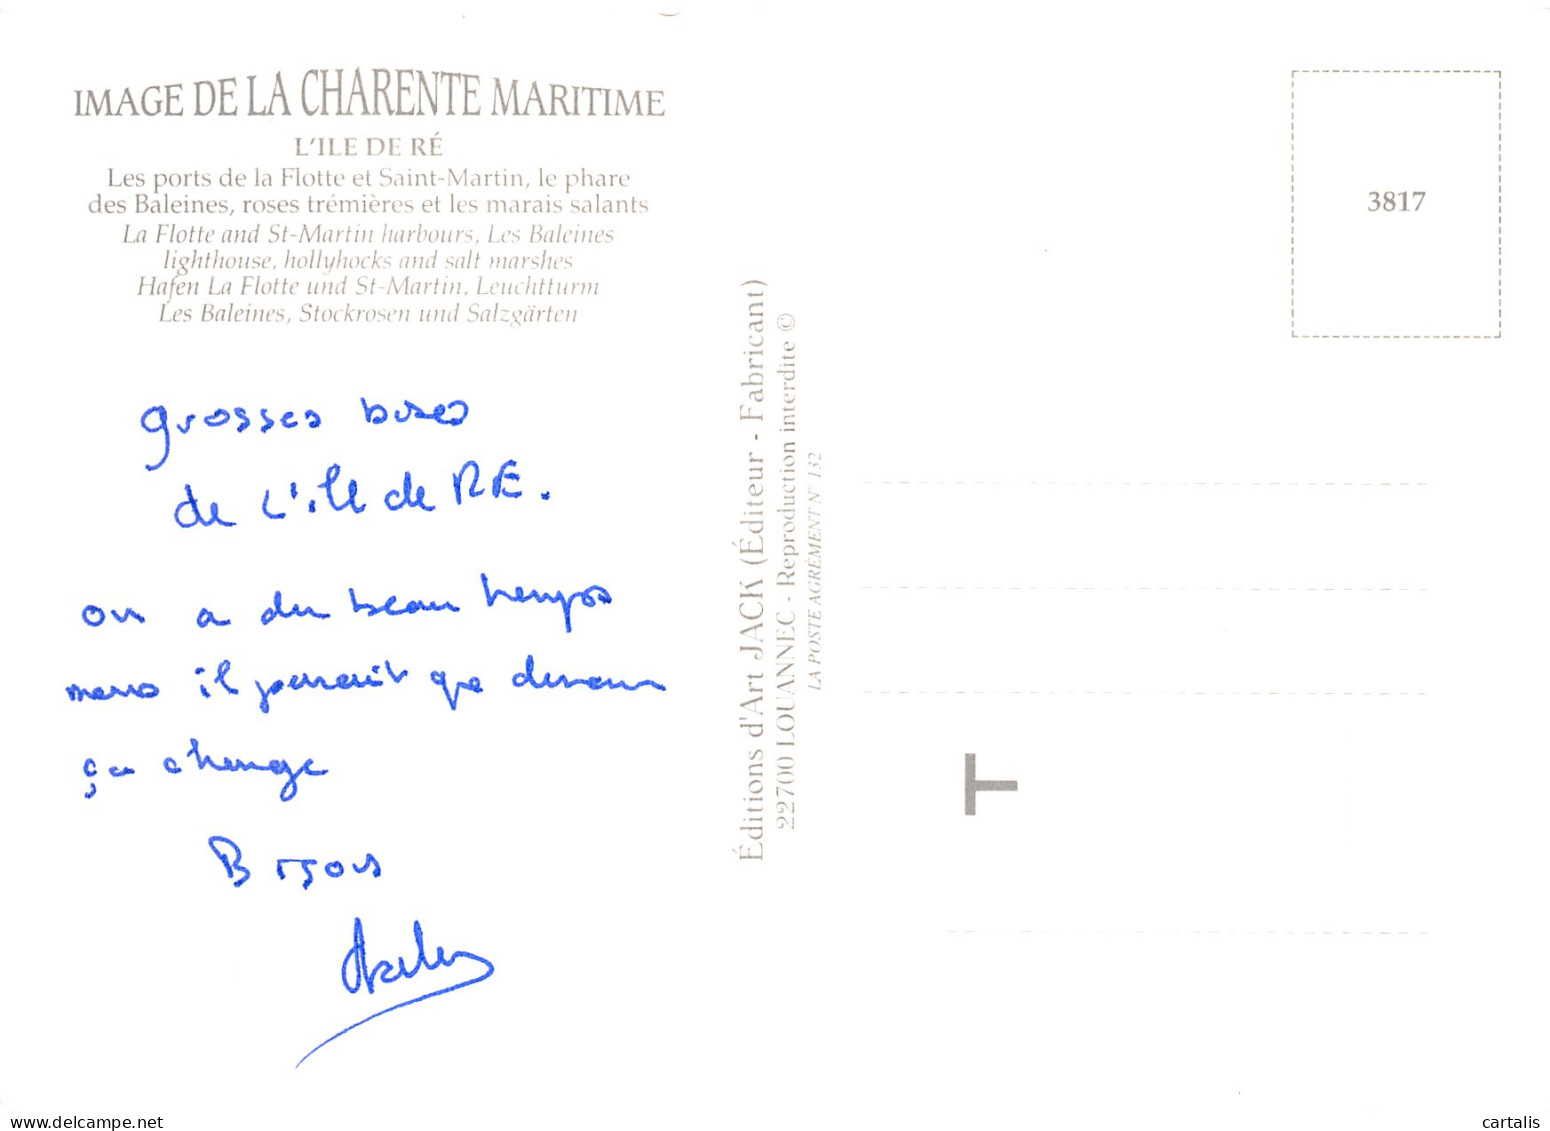 IMAGE DE LA CHARENTE MARITIME
L'ILE DE RÉ
Les ports de la Flotte et Saint-Martin, le phare
des Baleines, roses trémières et les marais salants
La Flotte and St-Martin harbours, Les Baleines
lighthouse, hollyhocks and salt marshes
Hafen La Flotte und St-Martin, Leuchtturm
Les Baleines, Stockrosen und Salzgärten
grosses bises
de L'ille de RE.
on a du beau temps
mais il parait que demain
ça change
Bisous
Éditions d'Art JACK (Éditeur - Fabricant)
22700 LOUANNEC - Reproduction interdite ©
LA POSTE AGRÉMENT N° 132
3817
T
www.delcampe.net
cartalis